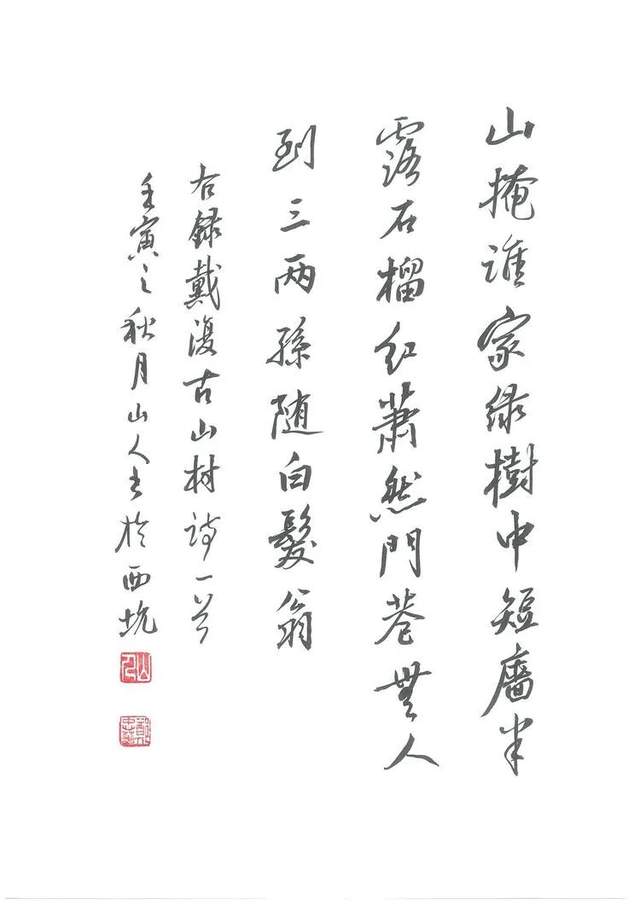 山掩誰家緑樹中短牆半
露石榴紅蕭然門巷無人
到三兩孫随白髮翁
右録戴復古山村詩一首
壬寅之秋月山人書於西坑
山人